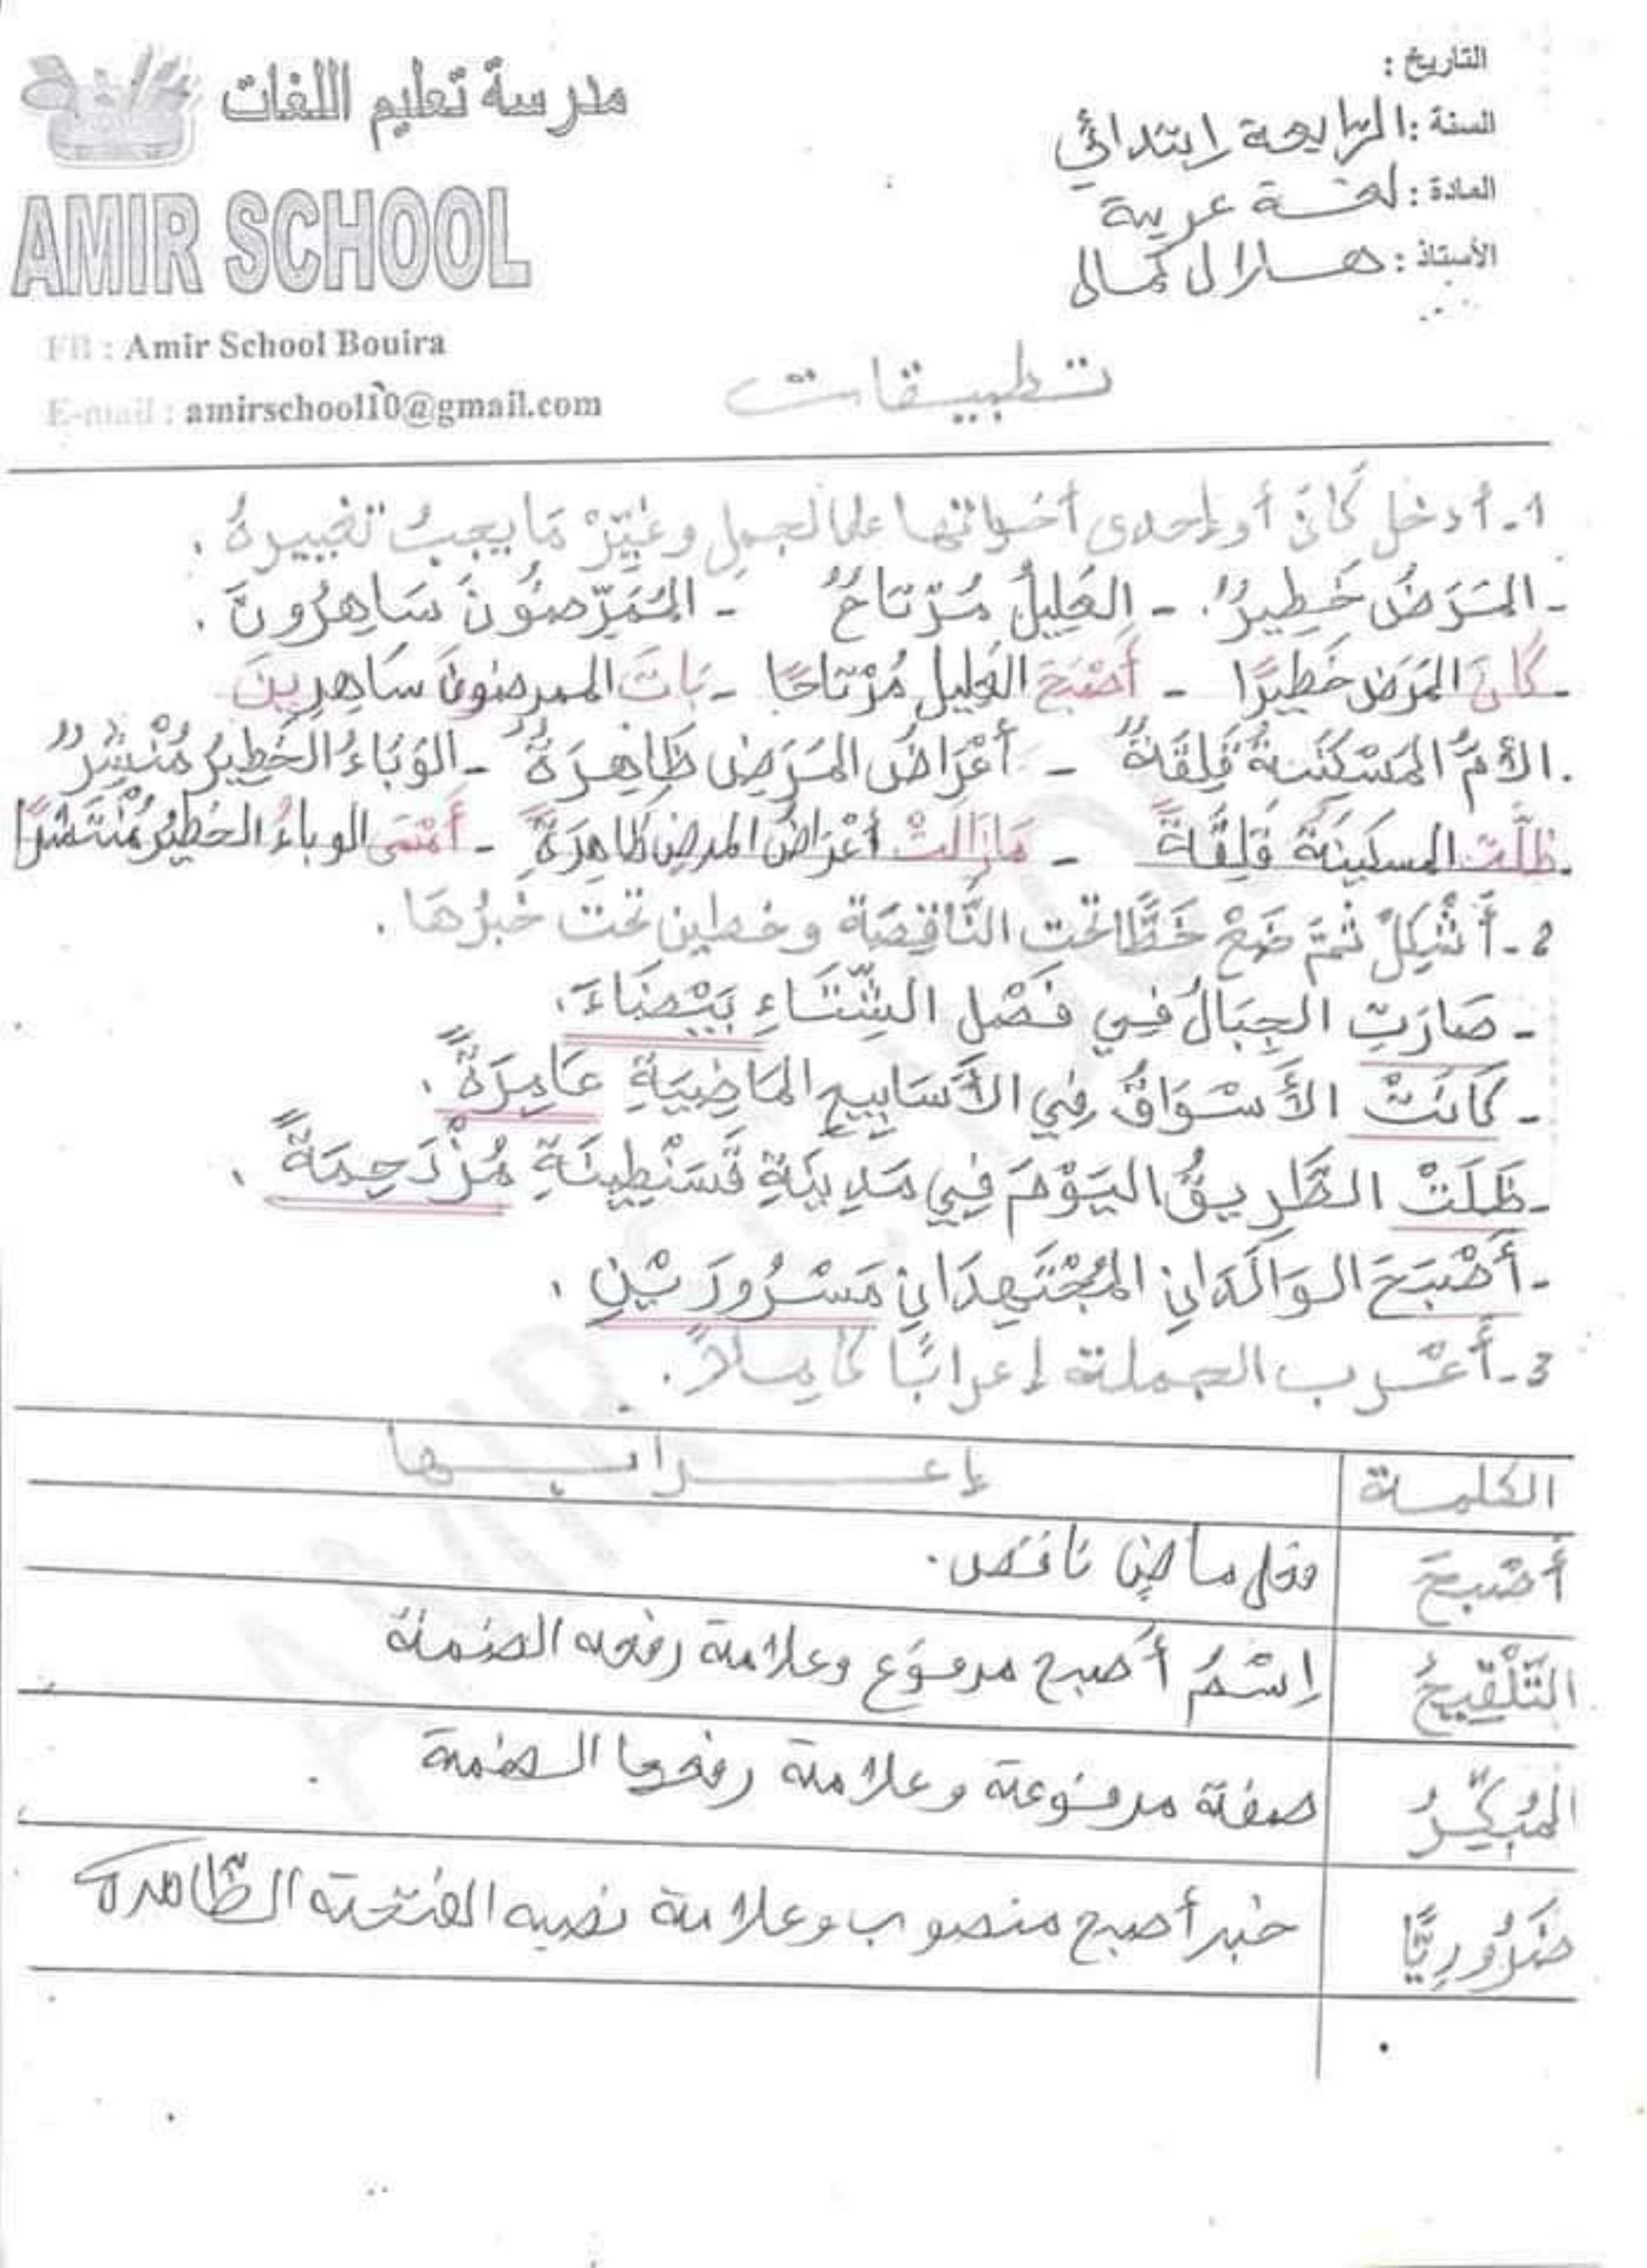 مدرسة تعليم اللغات
AMIR SCHOOL
FB : Amir School Bouira
E-mail : amirschool10@gmail.com
التاريخ :
السنة : الرابعة ابتدائي
المادة : لغة عربية
الأستاذ :
تطبيقات
1- أدخل كَانَ أو إحدى أخواتها على الجمل وغَيِّرْ مَا يجبُ تغييرهُ .
- المَرَضُ خَطِيرٌ . - العَلِيلُ مُرْتَاحٌ - المُمَرِّضُونَ سَاهِرُونَ .
- كَانَ المَرَض خَطِيرًا - أَصْبَحَ العَلِيل مُرْتَاحًا - بَاتَ الممرضونَ سَاهِرِينَ
. الأمُّ المَسْكِنَةُ قَلِقَةٌ - أَعْرَاضُ المَرَضِ ظَاهِرَةٌ - الوَبَاءُ الخَطِيرُ مُنْتَشِرٌ
. ظلَّت المسكينَةُ قَلِقَةً - مَازَالَتْ أعْرَاضُ المرضِ ظَاهِرَةً - أَمْسَى الوباءُ الخطيرُ مُنْتَشرًا
2- أَشْكِلْ ثُمَّ ضَعْ خَطًّا تحت النَّاقِصَة وخطين تحت خبرُهَا .
- صَارَتِ الجِبَالُ فِي فَصْلِ الشِّتَاءِ بَيْضَاءَ .
- كَانَتْ الأَسْوَاقُ فِي الأَسَابِيعِ المَاضِيَةِ عَامِرَةً .
- ظَلَتْ الطَّرِيقُ اليَوْمَ فِي مَدِينَةِ قَسَنْطِينَةِ مُزْدَحِمَةً .
- أَصْبَحَ الوَالَدَانِ المُجْتَهِدَانِ مَسْرُورَيْنِ .
3- أَعْرب الجملة إعرابًا كاملاً .
الكلمة إعرابها
أَصْبحَ فعل ماضٍ ناقص .
التَلْقِيحُ اِسْمُ أصبح مرفوع وعلامة رفعه الضمة
المُبكِّرُ صفة مرفوعة وعلامة رفعها الضمة
ضَرُورِيًّا خبر أصبح منصوب وعلامة نصبه الفتحة الظّاهرة